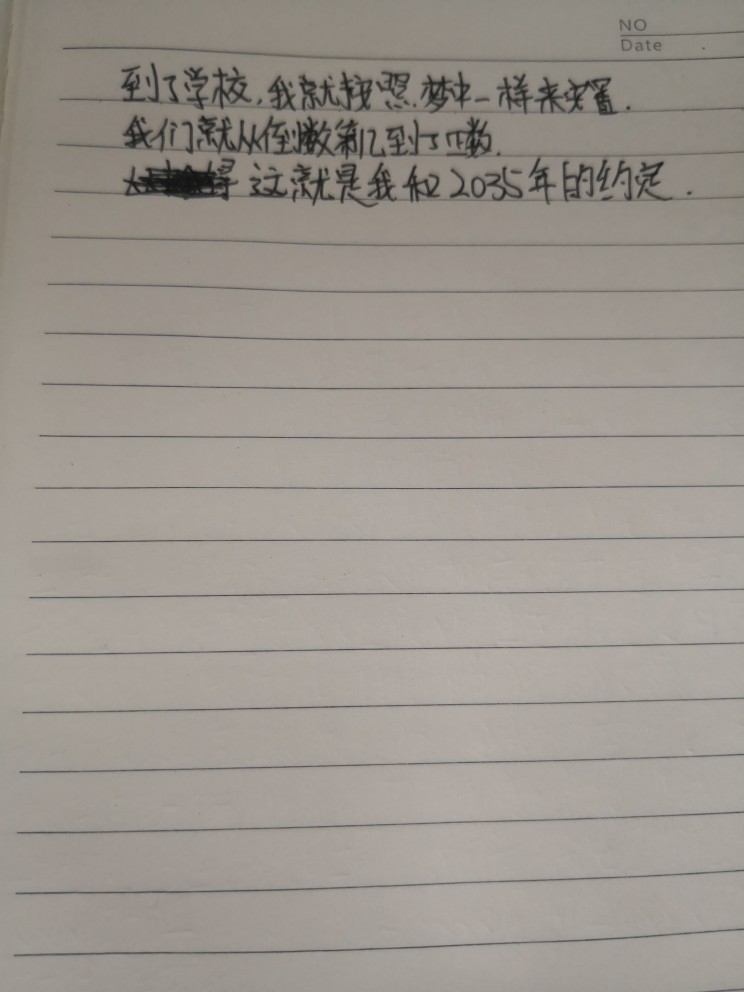 NO
Date
到了学校，我就按照梦中一样来安置.
我们就从倒数第几到了正数.
这就是我和2035年的约定.